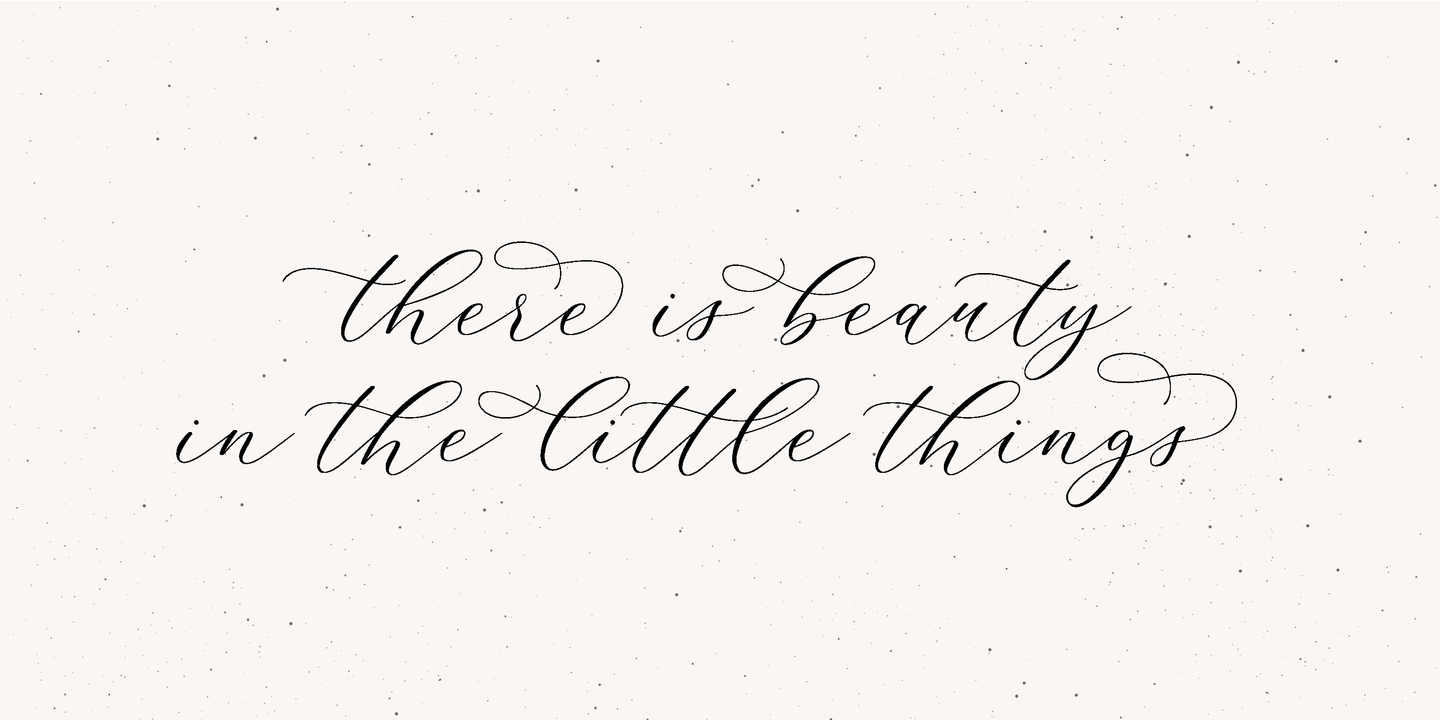 there is beauty
in the little things